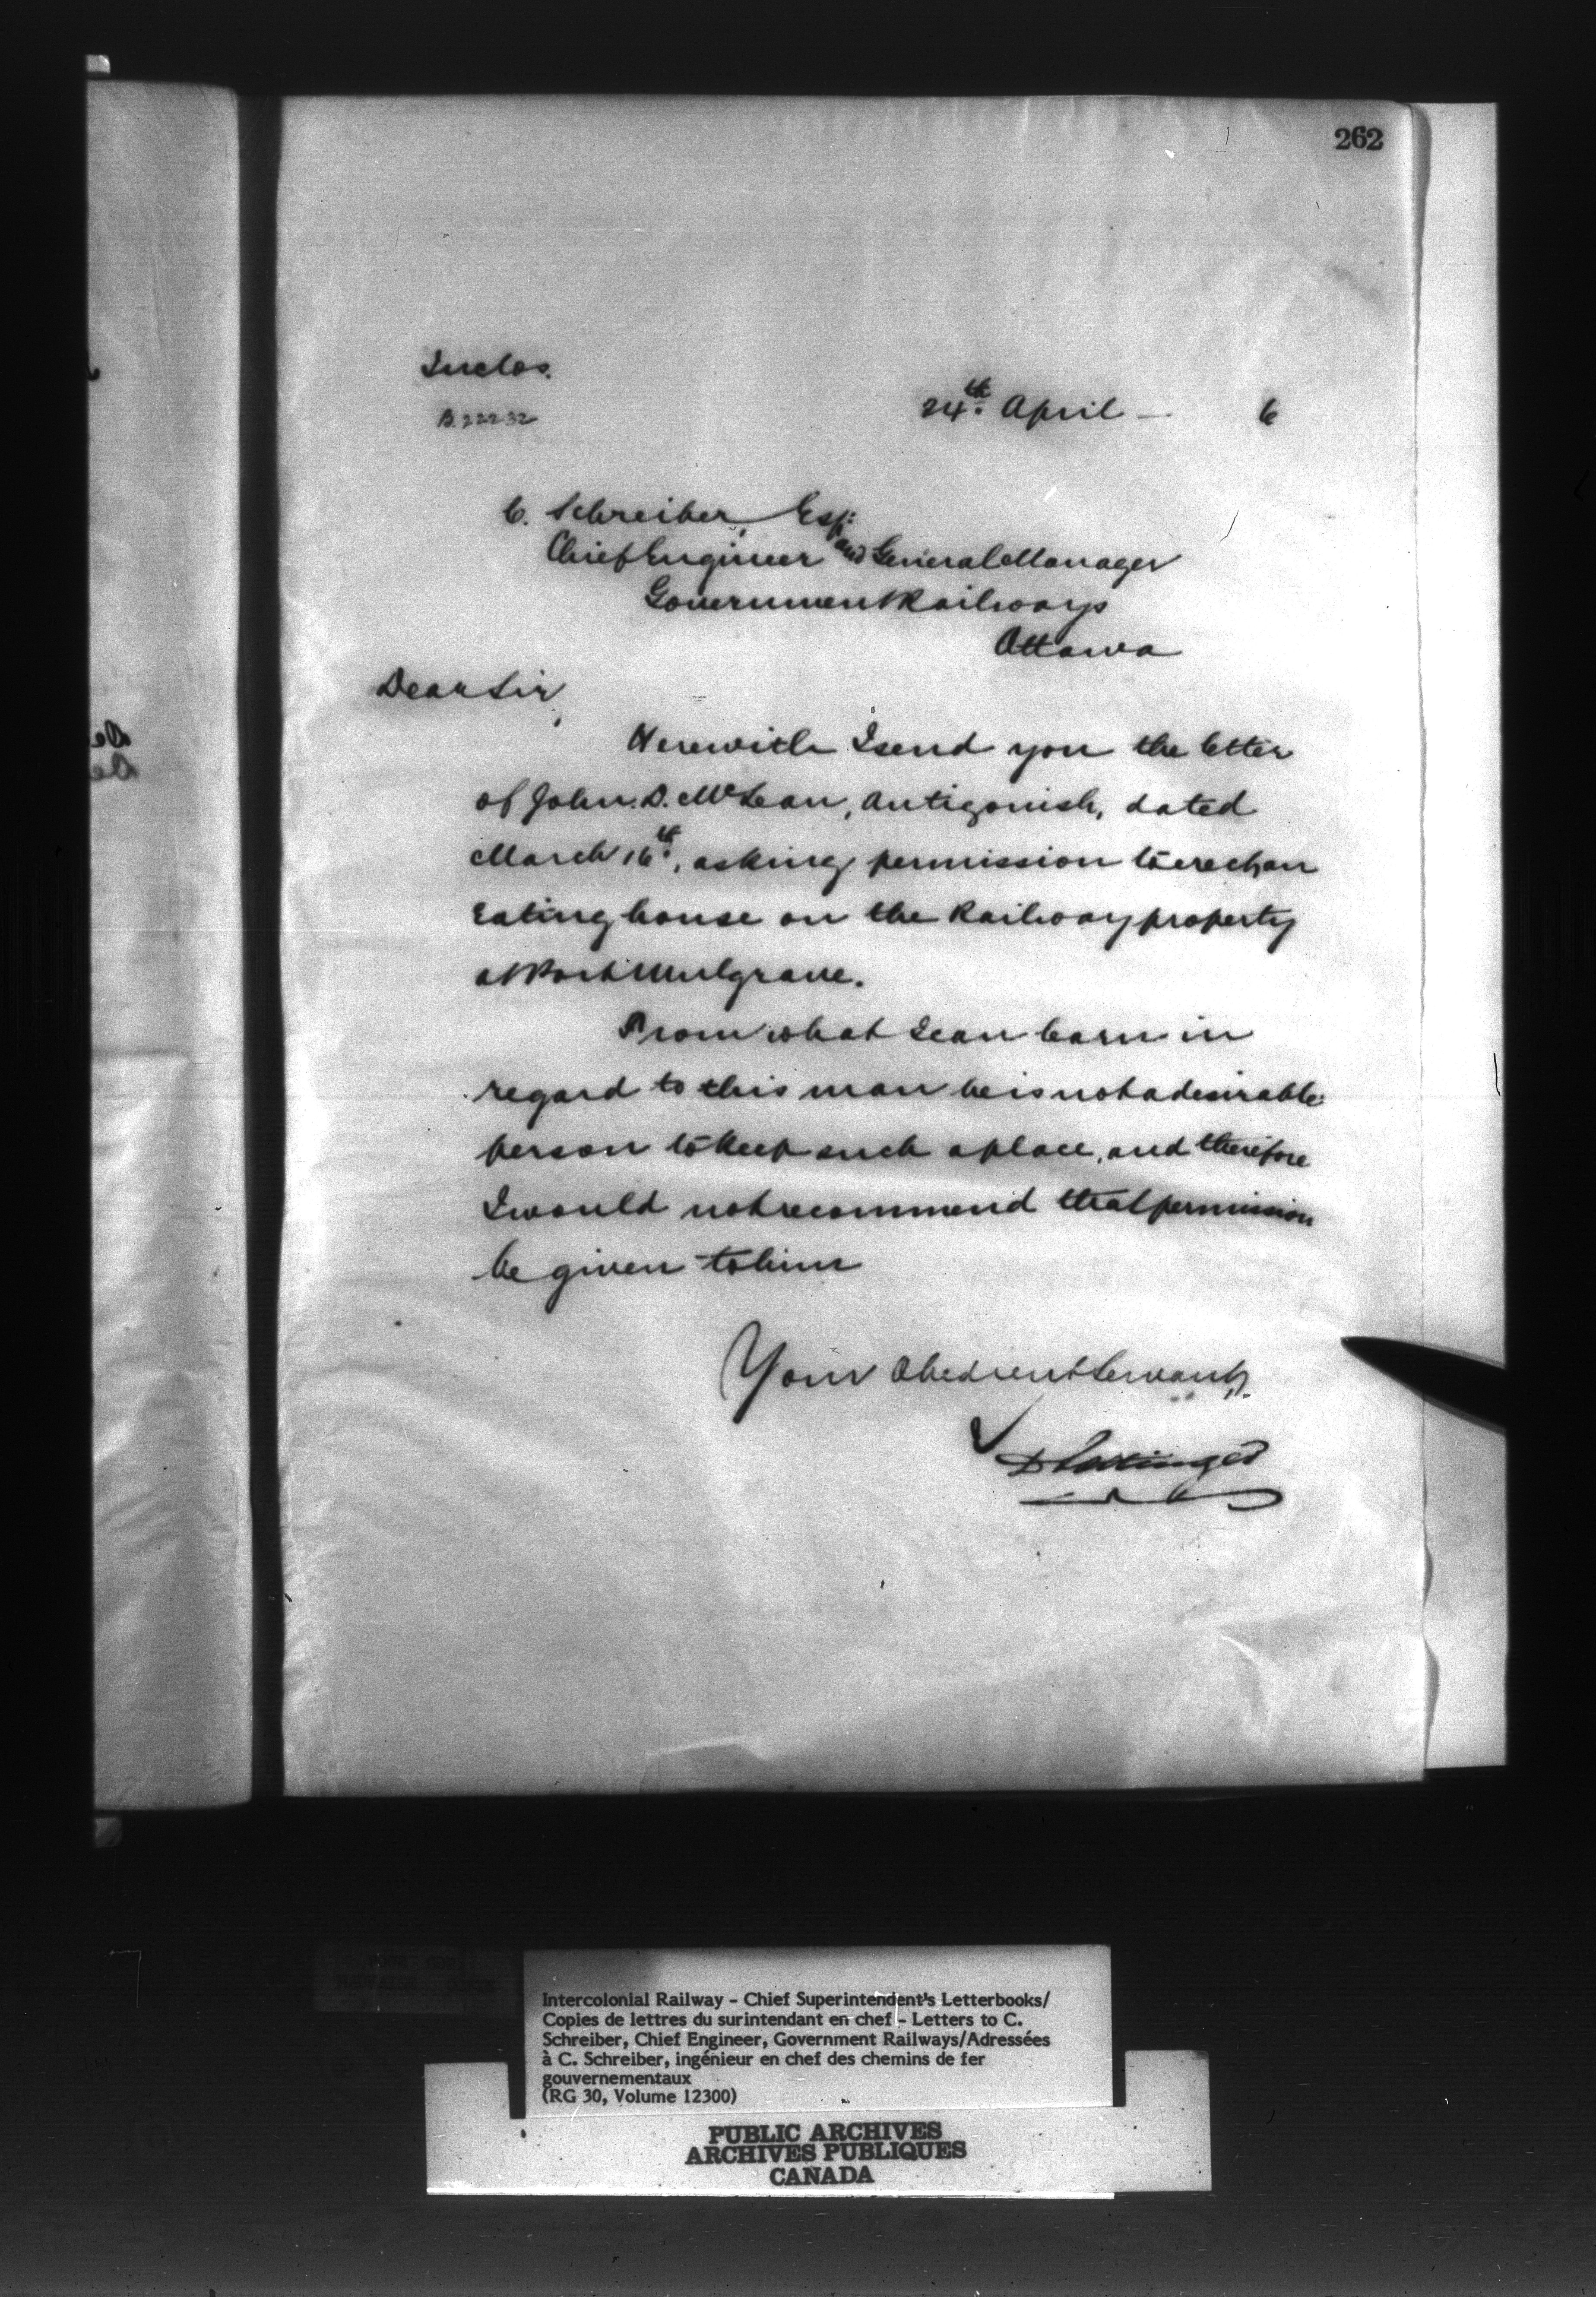 262
Inclos.
B.22232
24th. April — 6
C. Schreiber, Esq:
Chief Engineer and General Manager
Government Railways
Ottawa
Dear Sir,
Herewith I send you the letter
of John. D. McLean, Antigonish, dated
March 16th, asking permission to erect an
Eating house on the Railway property
at Port Mulgrave.
From what I can learn in
regard to this man he is not a desirable
person to keep such a place, and therefore
I would not recommend that permission
be given to him
Your Obedient Servant,
D Pottinger
Intercolonial Railway - Chief Superintendent's Letterbooks/
Copies de lettres du surintendant en chef - Letters to C.
Schreiber, Chief Engineer, Government Railways/Adressées
à C. Schreiber, ingénieur en chef des chemins de fer
gouvernementaux
(RG 30, Volume 12300)
PUBLIC ARCHIVES
ARCHIVES PUBLIQUES
CANADA